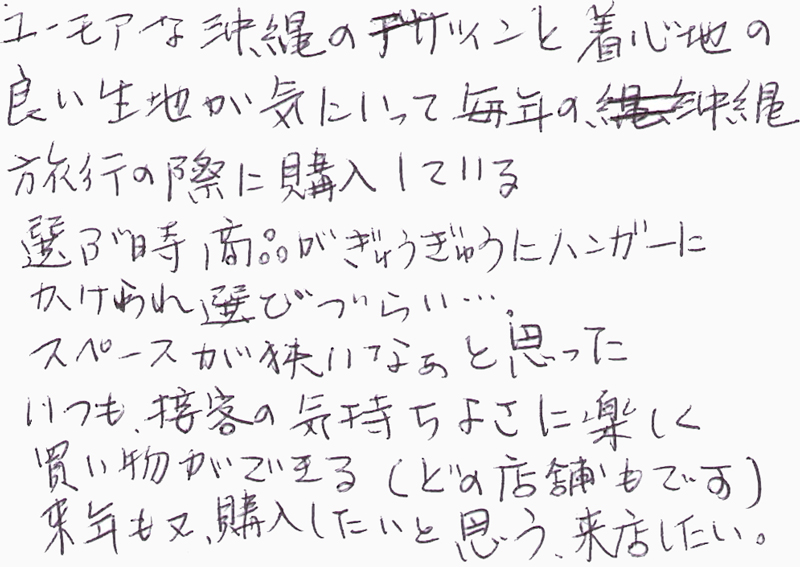 ユーモアな沖縄のデザインと着心地の
良い生地が気にいって毎年の沖縄
旅行の際に購入している
選ぶ時商品がぎゅうぎゅうにハンガーに
かけられ選びづらい….
スペースが狭いなぁと思った
いつも、接客の気持ちよさに楽しく
買い物ができる(どの店舗もです)
来年も又、購入したいと思う、来店したい。